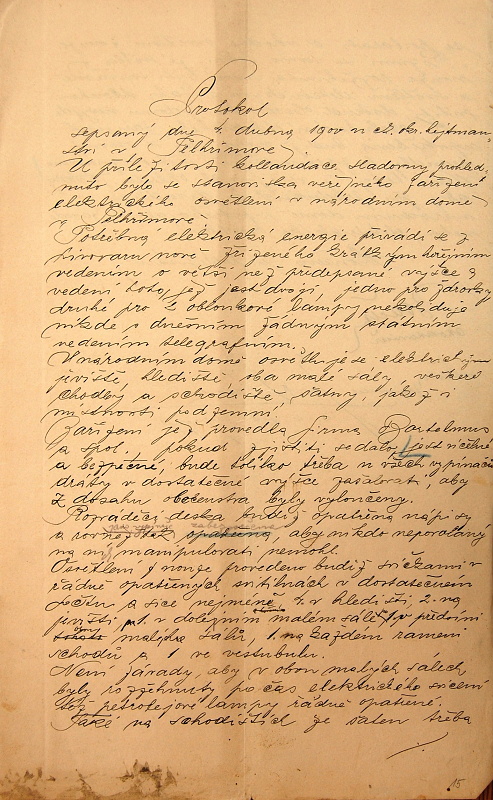 Protokol
sepsaný dne 4. dubna 1900 u c.k. okr. hejtman-
ství v Pelhřimově.
U příležitosti kollaudace sladovny prohléd-
nuto bylo se stanoviska veřejného zařízení
elektrického osvětlení v národním domě
v Pelhřimově.
Potřebná elektrická energie přivádí se z
pivovaru nově zřízeného krátkým hořejším
vedením o větší než předepsané výšce a
vedení toto, jež jest dvojí, jedno pro žárovky
druhé pro 2 obloukové lampy nekoliduje
nikde s dnešním žádným státním
vedením telegrafním.
V národním domě osvětluje se elektricky
jeviště, hlediště, oba malé sály, veškeré
chodby a schodiště, šatny, jakož i
místnosti podzemní.
Zařízení jež provedla firma Bartelmus
a spol., pokud zjistiti se dalo, jest účelné
a bezpečné, bude toliko třeba u všech vypínačů
dráty v dostatečné výšce zasádrovat, aby
z dosahu obecenstva byly vyloučeny.
Rozváděcí deska budiž opatřena nápisy
a rovněž tak opatřena, aby nikdo nepovolaný
na ní manipulovati nemohl.
Osvětlení z nouze provedeno budiž svíčkami v
řádně opatřených svítilnách v dostatečném
počtu a sice nejméně 4 v hledišti, 2 na
jevišti, 1 v dolejším malém sále, 1 v předsíni
malých sálů, 1 na každém rameni
schodů a 1 ve vestibulu.
Není závady, aby v obou malých sálech
byly rozžehnuty po čas elektrického svícení
též petrolejové lampy řádně opatřené.
Také na schodištích ze šaten třeba
15